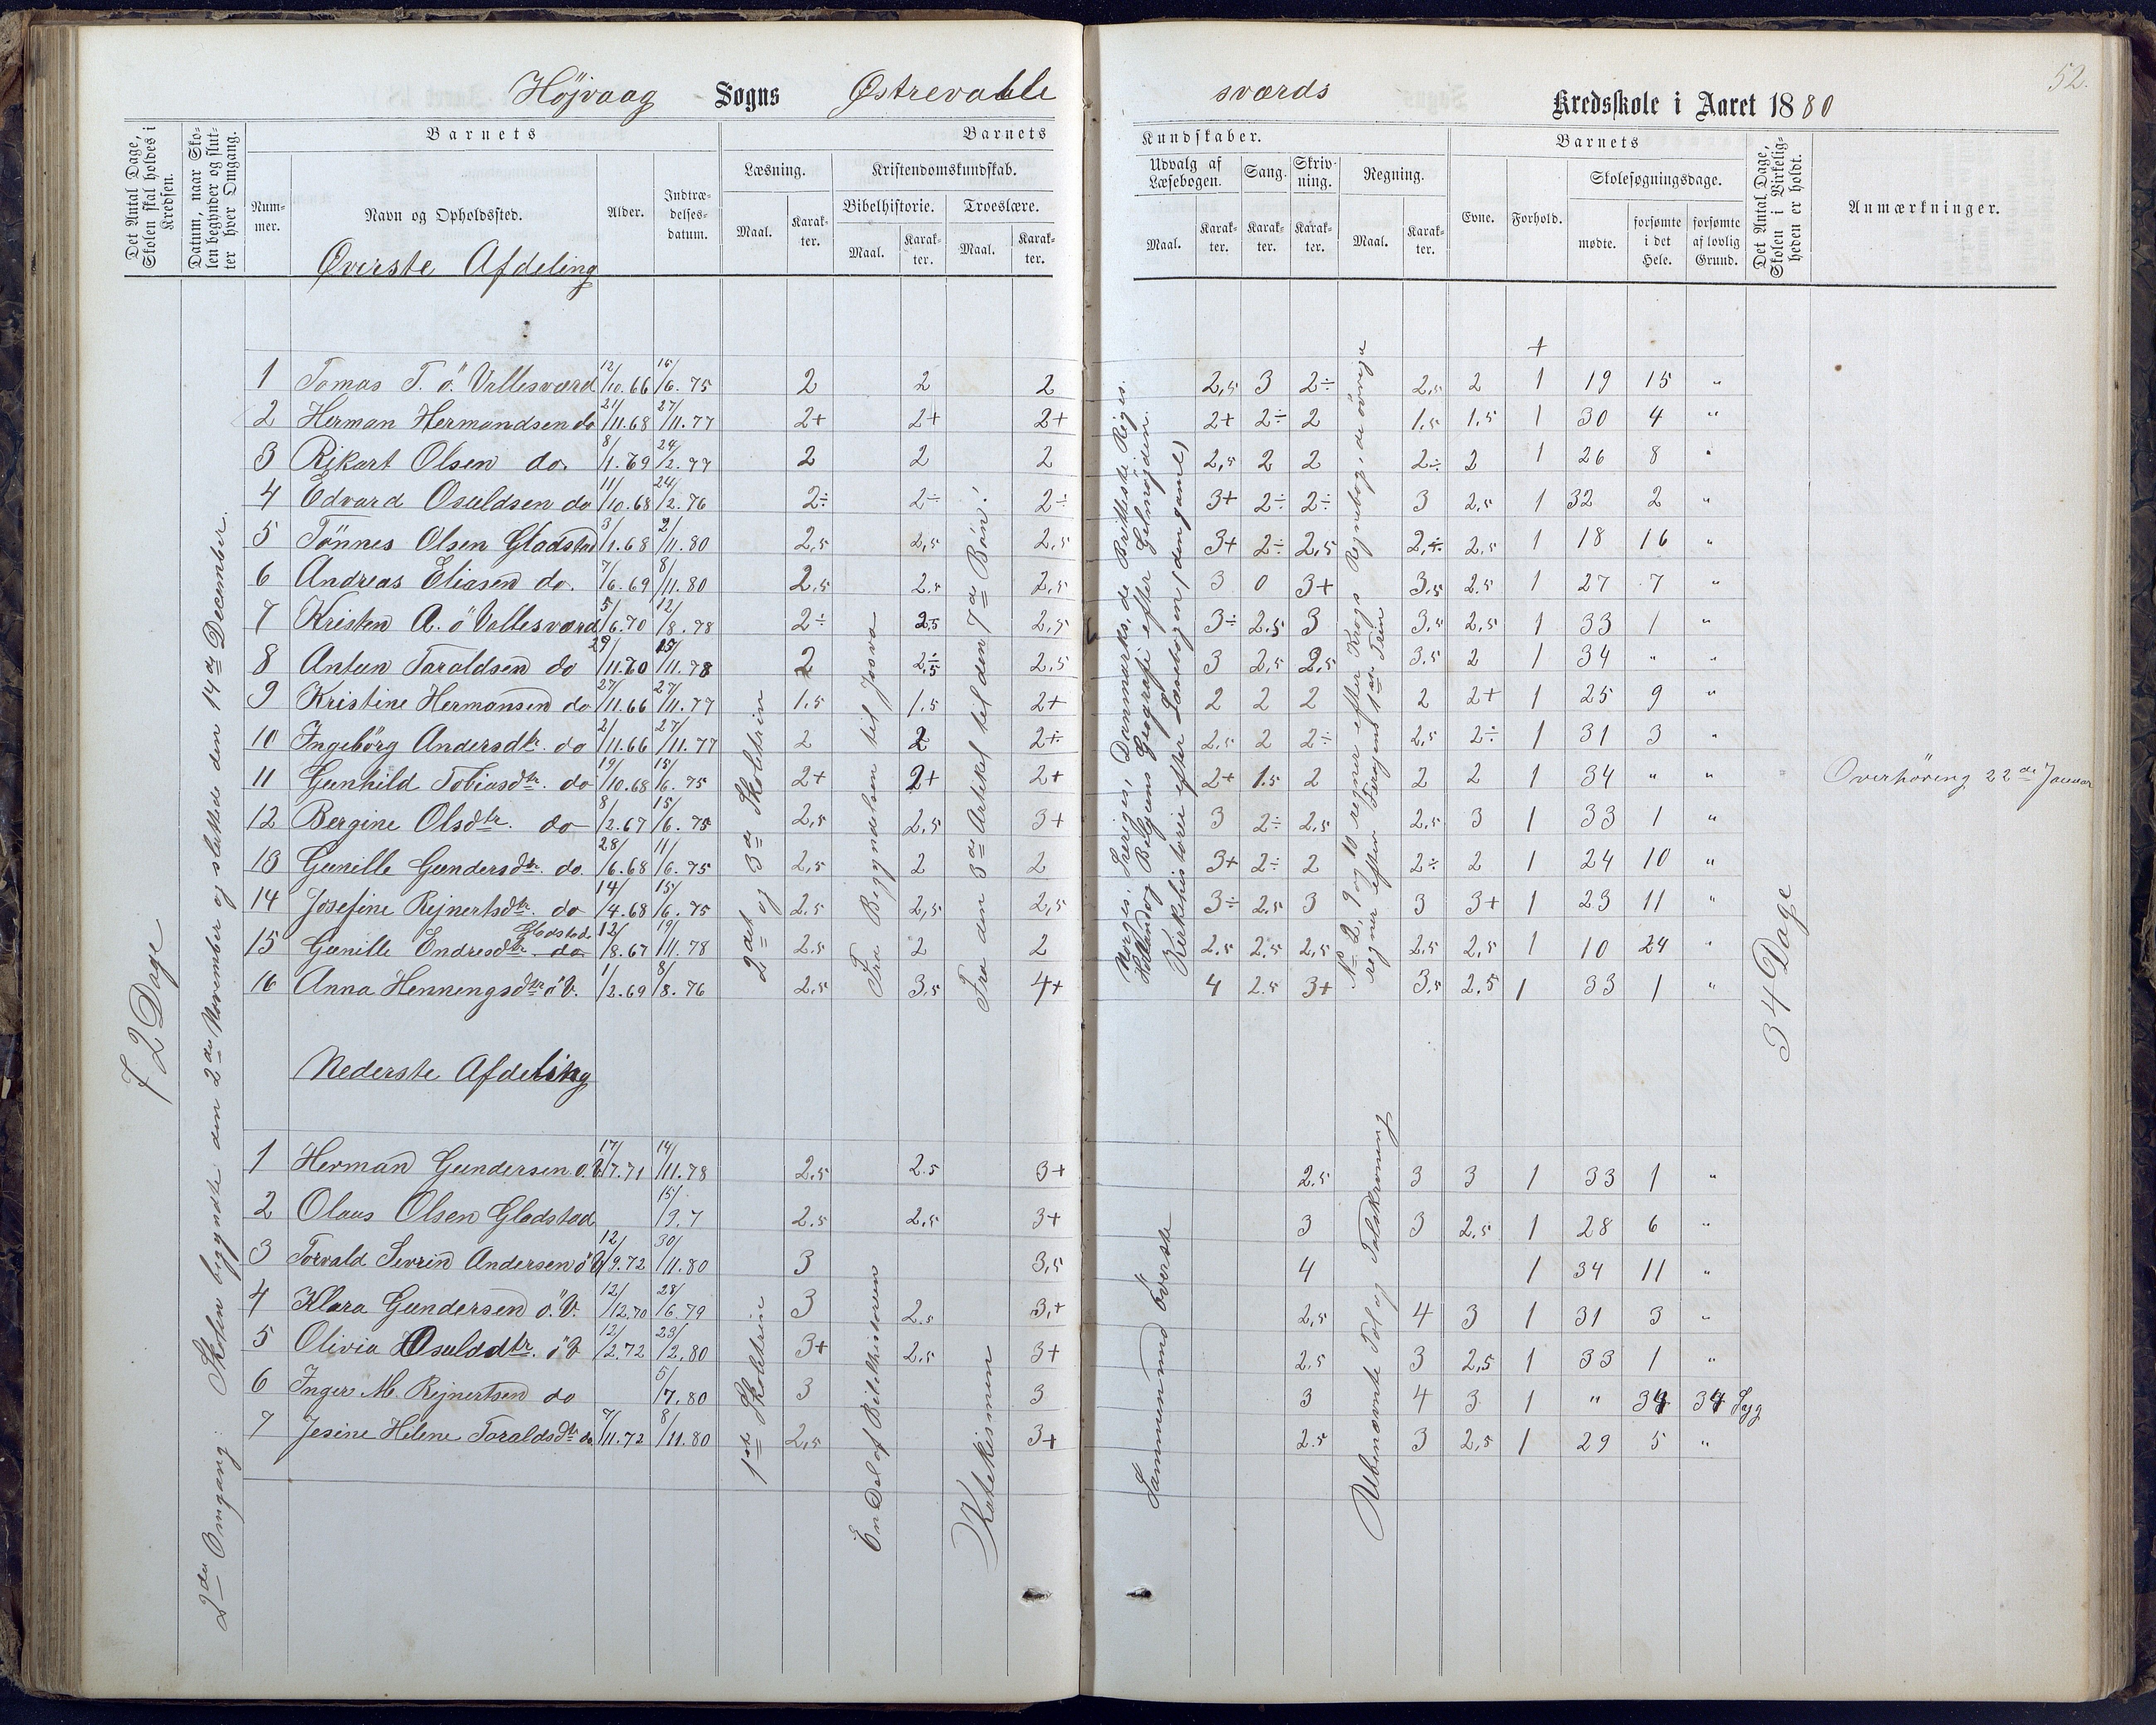 52.
Højvaag Sogns Østrevalle sværds Kredsskole i Aaret 1880
Det Antal Dage, Skolen skal holdes i Kredsen.
Datum, naar Skolen begynder og slutter hver Omgang.
Barnets
Nummer.
Navn og Opholdssted.
Alder.
Indtrædelsesdatum.
Barnets Kundskaber.
Læsning.
Maal. Karakter.
Kristendomskundskab.
Bibelhistorie. Troeslære.
Maal. Karakter. Maal. Karakter.
Udvalg af Læsebogen.
Maal. Karakter.
Sang. Karakter.
Skrivning. Karakter.
Regning.
Maal. Karakter.
Barnets
Evne. Forhold.
Skolesøgningsdage.
mødte. forsømte i det Hele. forsømte af lovlig Grund.
Det Antal Dage, Skolen i Virkeligheden er holdt.
Anmærkninger.
Øverste Afdeling
+
1 Tomas T. ö. Vallesværd 12/10.66 15/6.75 2 2 2 2,5 3 2÷ 2,5 2 1 19 15 "
2 Herman Hermandsen do 21/11.68 27/11.77 2+ 2+ 2+ 2+ 2÷ 2 1.5 1.5 1 30 4 "
3 Rikart Olsen do. 8/1.69 24/2.77 2 2 2 2,5 2 2 2÷ 2 1 26 8 "
4 Edvard Osuldsen do 11/10.68 24/2.76 2÷ 2÷ 2÷ 3+ 2÷ 2÷ 3 2,5 1 32 2 "
5 Tönnes Olsen Gladstad 3/1.68 2/11.80 2,5 2,5 2,5 3+ 2÷ 2,5 2,÷ 2.5 1 18 16 "
6 Andreas Eliasen do. 7/6.69 8/11.80 2,5 2.5 2,5 3 0 3+ 3,5 2.5 1 27 7 "
7 Kristen A. ö Vallesværd 5/6.70 12/8.78 2÷ 2.5 2,5 3÷ 2.5 3 3,5 2,5 1 33 1 "
8 Antun Taraldsen do 29/11.70 15/11.78 2 2,5 2,5 3 2,5 2,5 3.5 2 1 34 " "
9 Kristine Hermansen do 27/11.66 27/11.77 1.5 1.5 2+ 2 2 2 2 2+ 1 25 9 "
10 Ingebörg Andersdtr. do 2/11.66 27/11.77 2 2 2÷ 2,5 2 2÷ 2,5 2÷ 1 31 3 "
11 Gunhild Tobiasdtr. do 19/10.68 15/6.75 2+ 2+ 2+ 2+ 1.5 2 2 2 1 34 " "
Overhöring 22de Januar
12 Bergine Olsdtr. do 8/2.67 15/6.75 2,5 2,5 3+ 3 2÷ 2,5 2,5 3 1 33 1 "
13 Gunille Gundersdtr. do. 28/6.68 11/6.75 2,5 2 2 3+ 2÷ 2 2÷ 2 1 24 10 "
14 Josefine Rejnertsdtr. do 14/4.68 15/6.75 2.5 2,5 2,5 3÷ 2,5 3 3 3+ 1 23 11 "
15 Gunille Endresdtr. Gladstad do 12/8.67 19/11.78 2.5 2 2 2,5 2,5 2,5 2,5 2,5 1 10 24 "
16 Anna Henningsdtr ö V. 1/2.69 8/8.76 2,5 3,5 4+ 4 2.5 3+ 3,5 2.5 1 33 1 "
2det og 3de Skoletrin
Fra Begyndelsen til Josva
Fra den 3de Artikel til den 7de Bön!
Norges, Sveriges, Danmarks, de Brittiske Riges, Hollands og Belgiens Geografi efter Gelmøyden.
Kirkehistorie efter Læsebogen (den gamle)
No 2, 9 og 10 regner efter Krogs Regnebog, de övrige regner efter 1ste Trin
72 Dage
34 Dage
2den Omgang: Skolen begyndte den 2den November og sluttede den 14de December.
Nederste Afdeling
1 Herman Gundersen ö. V. 17/7.71 14/11.78 2.5 2.5 3+ 2.5 3 3 1 33 1 "
2 Olaus Olsen Gladstad 15/9.7 2.5 2,5 3+ 3 3 2,5 1 28 6 "
3 Torvald Sevrin Andersen ö V 12/9.72 30/11.80 3 3,5 4 1 34 11 "
4 Klara Gundersen ö. V. 12/12.70 28/6.79 3 2.5 3,+ 2,5 4 3 1 31 3 "
5 Olivia Osulddtr. ö V 12/2.72 23/2.80 3+ 2.5 3+ 2.5 3 2,5 1 33 1 "
6 Inger M. Rejnertsen do 5/7.80 3 3 3 4 3 1 " 34 34 Syg
7 Jesine Helene Taraldsdtr do 7/11.72 8/11.80 2,5 3+ 2.5 3 2,5 1 29 5 "
1ste Skoletrin
En Del af Bibelhistorien
Katekismen
Sammen med överste
Ubenævnte Tal og Talskrivning